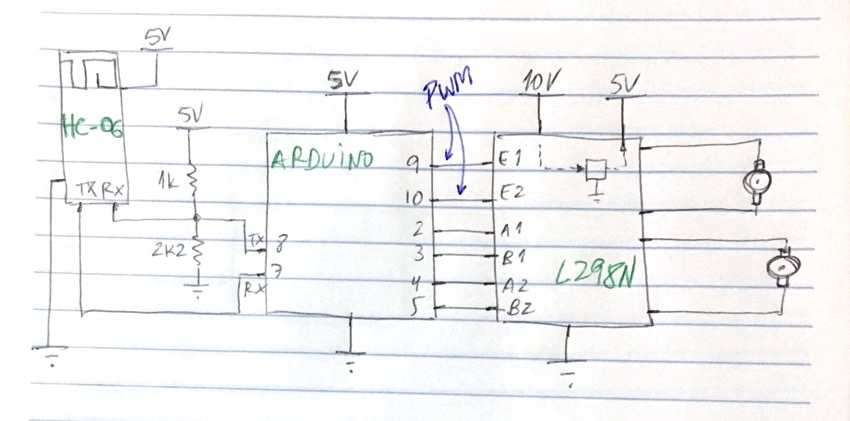 5V
HC-06
TX RX
5V
1k
2K2
5V
ARDUINO
TX 8
7
RX
9
10
2
3
4
5
PWM
10V
5V
E1
E2
A1
B1
A2
B2
L298N